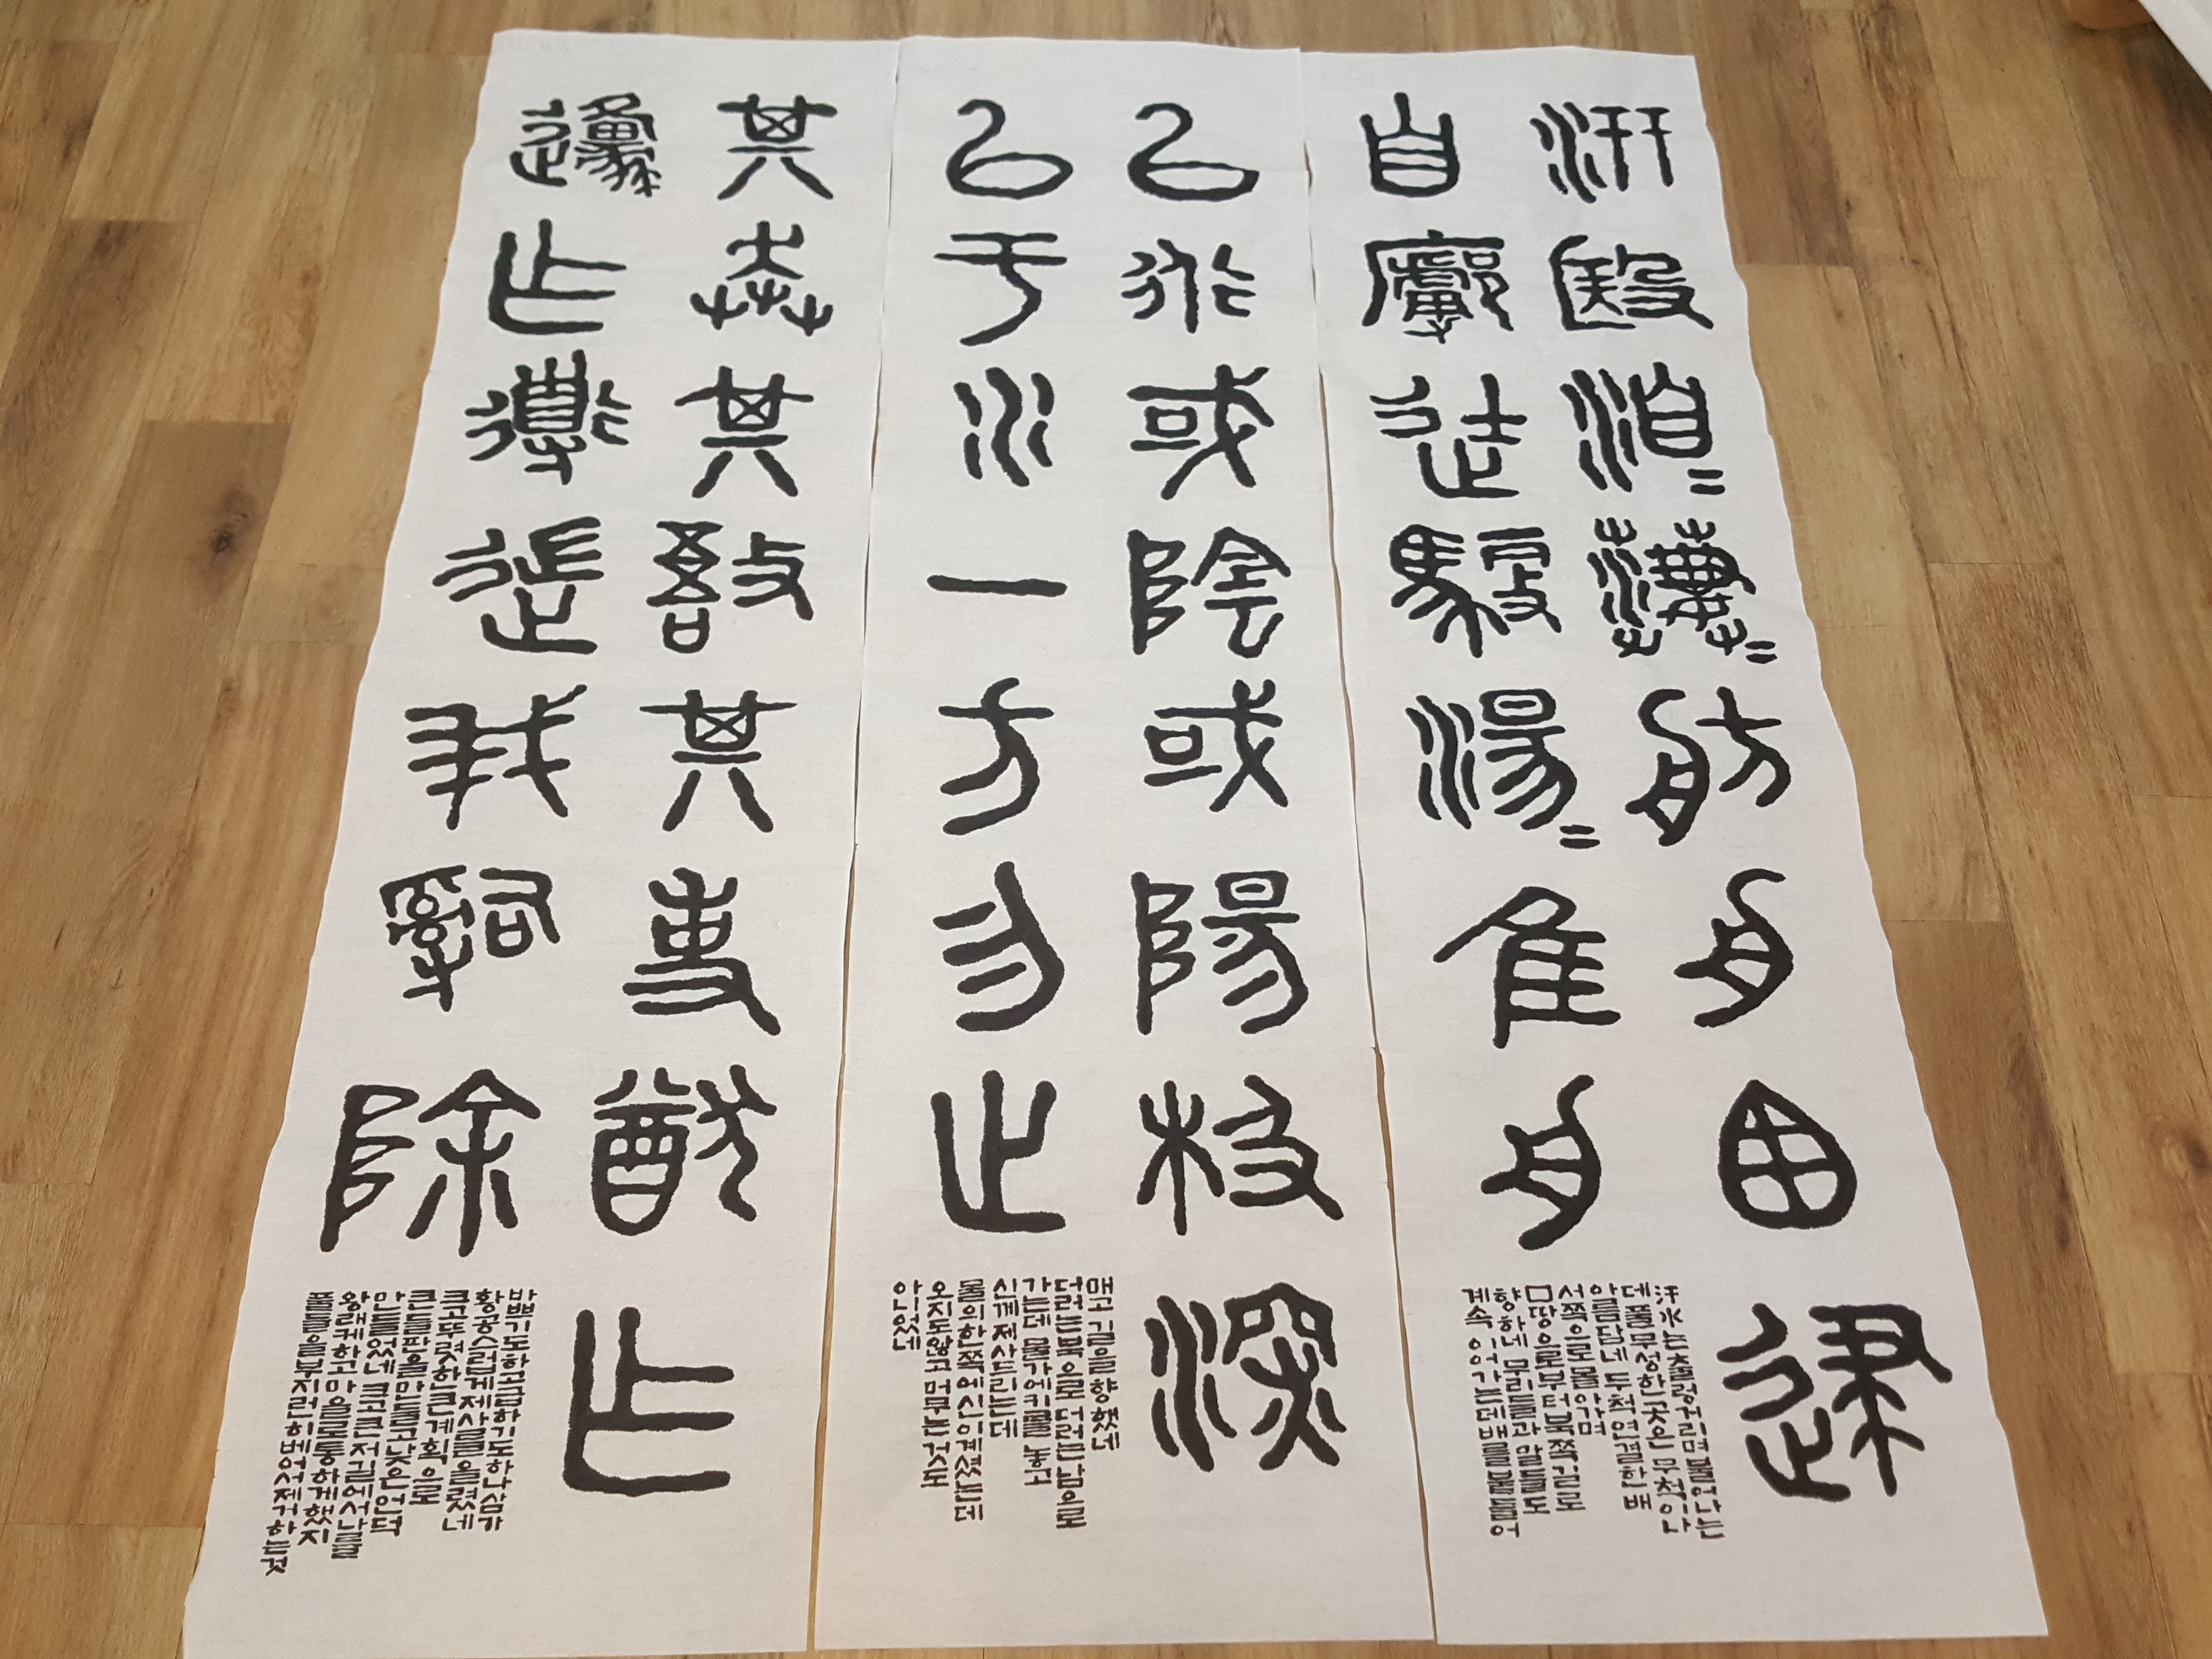 汧殹洎=淒=舫舟囪逮
汧水는출렁거리며불어나는
데풀무성한곳은 무척이나
아름답네 두척 연결한 배
서쪽으로몰아가며
□땅으로부터북쪽길로
향하네 무리들과말들도
계속 이어가는데배를붙들어
自廓徒馭湯=隹舟
以行或陰或陽极深
매고 길을향했네
더러는북으로 더러는남으로
가는데 물가에키를 놓고
신께 제사드리는데
물의한쪽에신이계셨는데
오지도않고 머무는것도
아니었네
以于水一方勿止
其奔其敔其事猷乍
바쁘기도하고급하기도하나삼가
황공스럽게제사를올렸네
크고뚜렷한큰계획으로
큰들판을만들고낮은언덕
만들었네 크고큰저길에서
왕래케하고마을로통하게했지
풀들을부지런히베어제거하는것
邍乍導遄我嗣除